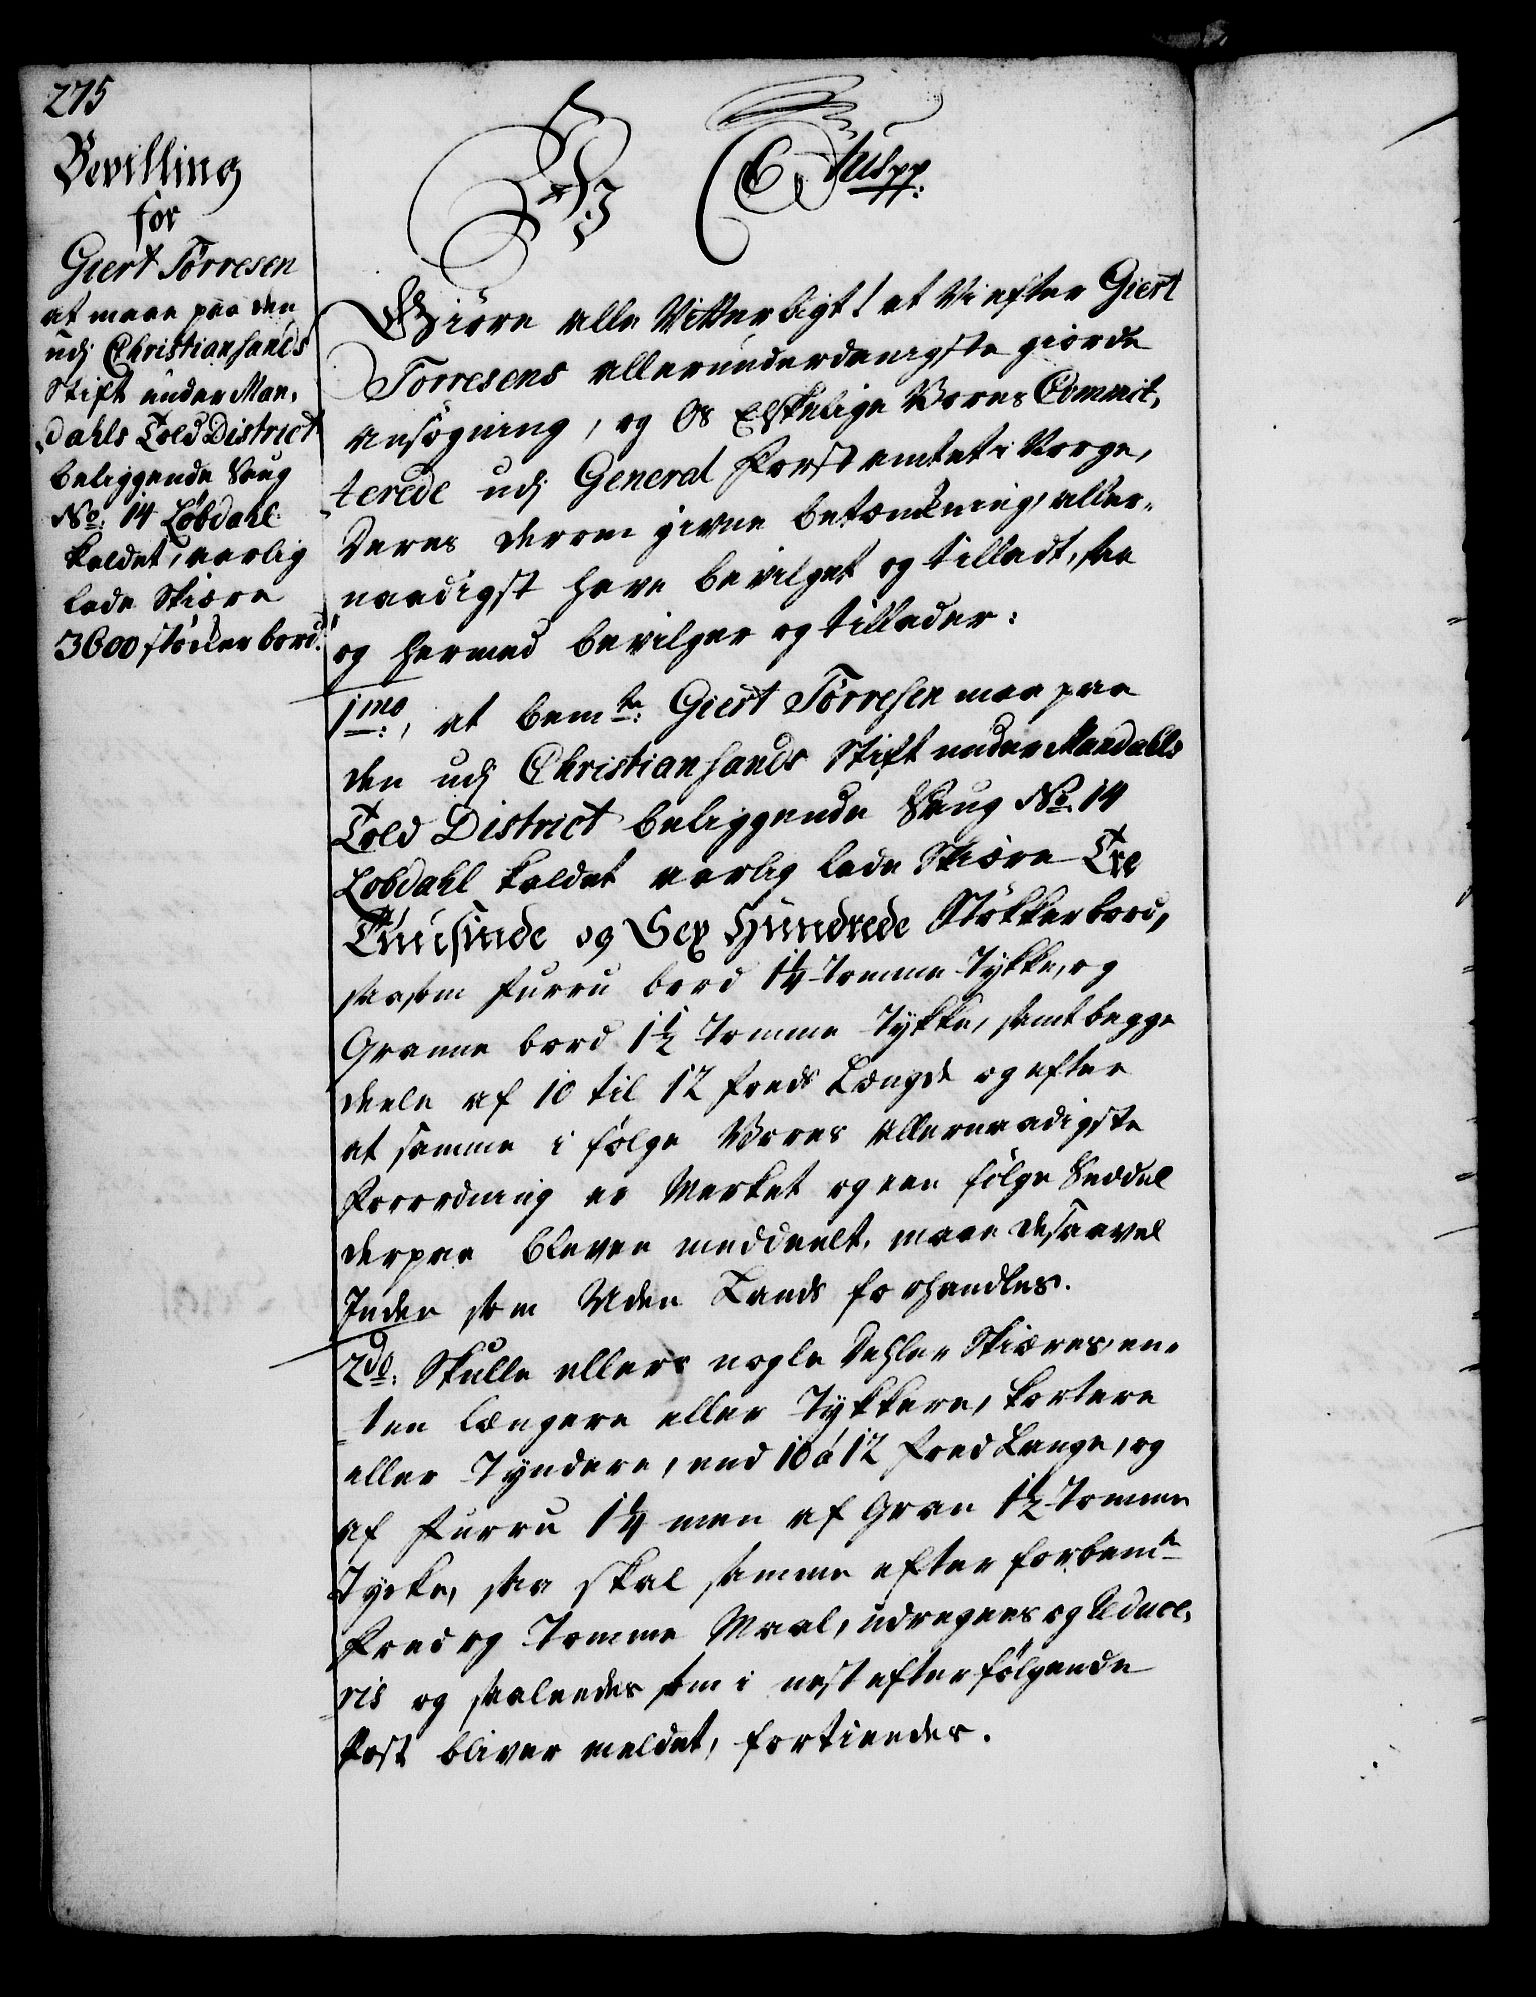 275
Bevilling
for
Giert Törresen
at maae paa den
udj Christiansands
Stift under Man,
dahls Told District
beliggende Saug
No: 14 Löbdahl
kaldet, aarlig
lade Skiære
3600 stöcker bord.
C7tus pp:
Giöre alle Vitterligt! at Vi efter Giert
Torresens allerunderdanigste giorde
Ansögning, og Os Elskelige Vores Committ,
terede udj General Forst amtet i Norge,
Deres derom givne betænkning, aller,
naadigst have bevilget og tilladt, saa
og hermed bevilger og tillader:
1mo:, at bemte: Giert Törresen maa paa
den udj Christiansands Stift under Mandahls
Told District beliggende Saug No. 14
Lobdahl kaldet aarlig lade Skiære Tre
Tuusinde og Sex Hundrede Stökker bord,
saasom Furru bord 1¼ Tomme Tykke, og
Granne bord 1½ Tomme Tykke, samt begge
deele af 10 til 12 foeds Længde og efter
at samme i fölge Vores Allernaadigste
Forordning er Merket og een fölge Seddel
derpaa bleven meddeelt, maae de saavel
Inden som Uden Lands forhandles.
2do: Skulle ellers nogle Dehler Skiæres, en,
ten længere eller Tykkere, kortere
eller Tyndere, end 10 á 12 foed Lange, og
af Furru 1¼ men af Gran 1½ Tomme
Tycke, saa skal samme efter forbemte
Foed og Tomme Maal, udregnes og Reduce,
ris og saaleedes som i nest efterfölgende
Post bliver meldet, fortiendes.